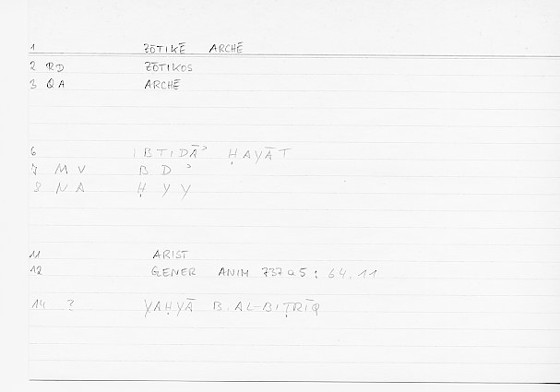 1 ZŌTIKĒ ARCHĒ
2 RD ZŌTIKOS
3 QA ARCHĒ
6 IBTIDĀʾ ḤAYĀT
7 MV BDʾ
8 NA ḤYY
11 ARIST
12 GENER ANIM 737a5 : 64.11
14 ? YAḤYĀ B. AL-BIṬRĪQ